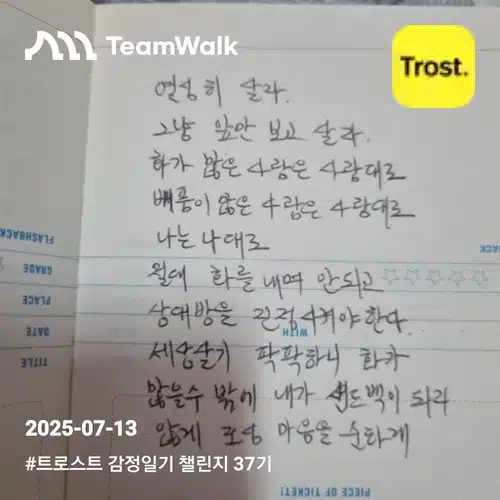 TeamWalk
Trost.
열심히 살라.
그냥 앞만 보고 살라.
화가 많은 사람은 사람대로
배품이 많은 사람은 사람대로
나는 나대로
절대 화를 내며 안되고
상대방을 진정시켜야 한다.
세상살기 팍팍하니 화가
많을수 밖에 내가 샌드백이 되라
않게 조심 마음을 순하게
FLASHBACK
GRADE
PLACE
DATE
TITLE
WITH
BACK
PIECE OF TICKET!
2025-07-13
#트로스트 감정일기 챌린지 37기